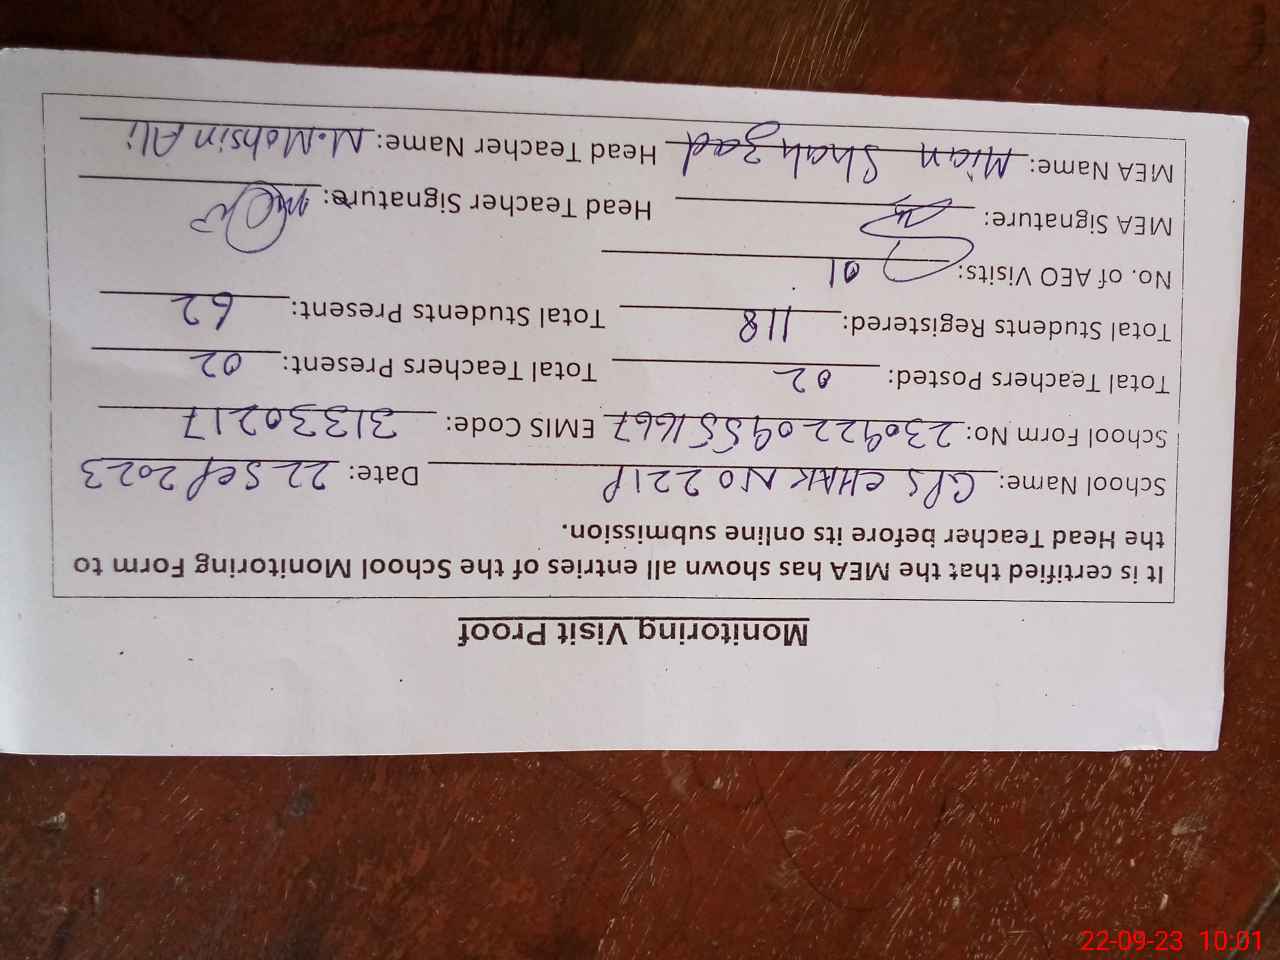 Monitoring Visit Proof
It is certified that the MEA has shown all entries of the School Monitoring Form to
the Head Teacher before its online submission.
School Name: GPS CHAK NO 221P Date: 22 Sep 2023
School Form No: 23092209551667 EMIS Code: 31330217
Total Teachers Posted: 02 Total Teachers Present: 02
Total Students Registered: 118 Total Students Present: 62
No. of AEO Visits: 01
MEA Signature: Head Teacher Signature:
MEA Name: Mian Shahzad Head Teacher Name: M.Mohsin Ali
22-09-23 10:01